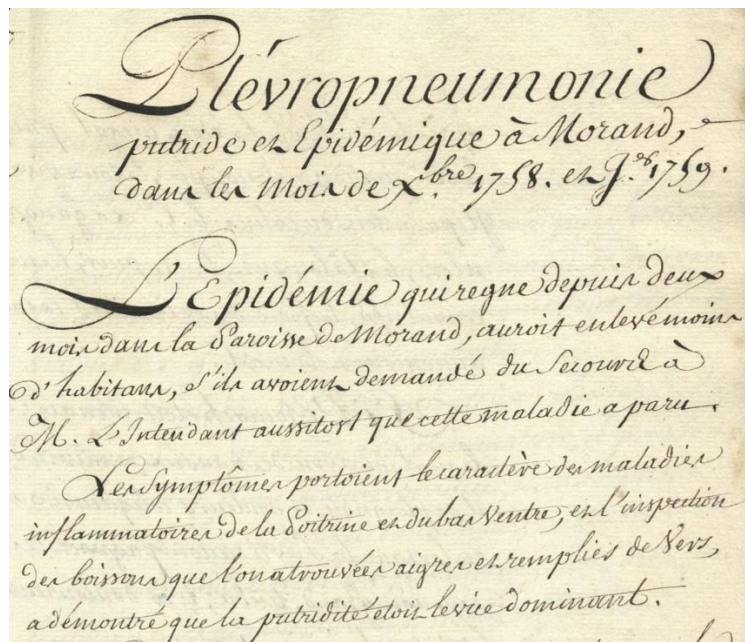 Plévropneumonie
putride et Epidémique à Morand,
dans les Mois de X.bre 1758. et J.er 1759.
L'Epidémie qui regne depuis deux
mois dans la Paroisse de Morand, auroit enlevé moins
d'habitans, s'ils avoient demandé du Secours à
M. L'Intendant aussitost que cette maladie a paru.
Les Symptômes portoient le caractère des maladies
inflammatoires de la Poitrine et du bas Ventre, et l'inspection
des boissons que l'on a trouvées aigres et remplies de Vers,
a démontré que la putridité étoit le vice dominant.